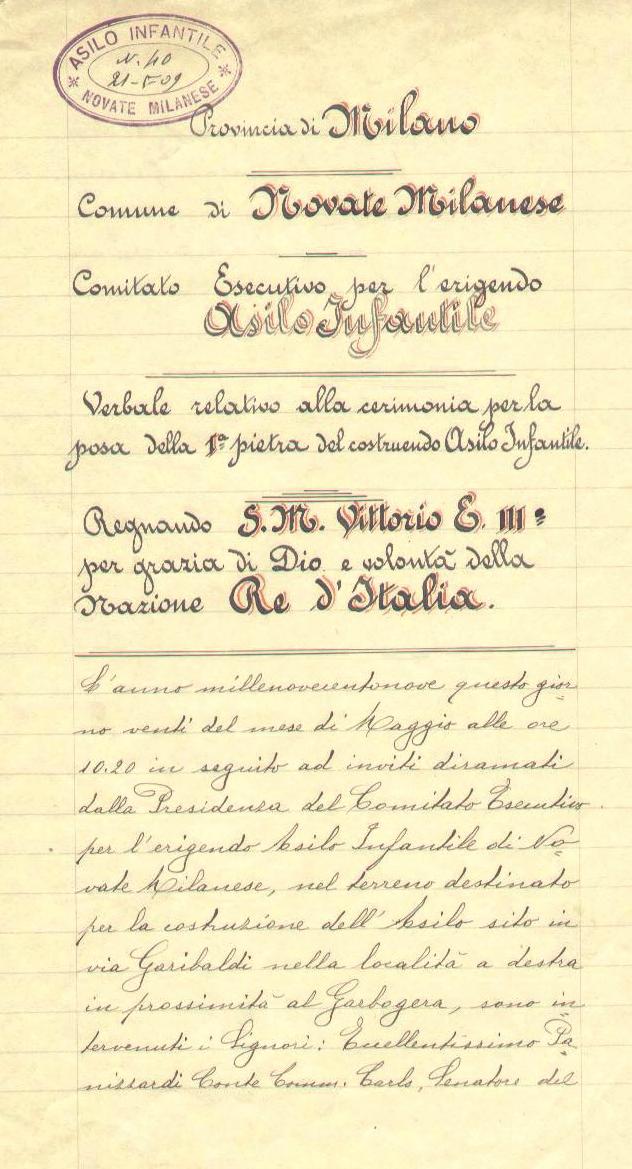 ASILO INFANTILE
N. 40
21-5-09
* NOVATE MILANESE *
Provincia di Milano
Comune di Novate Milanese
Comitato Esecutivo per l'erigendo
Asilo Infantile
Verbale relativo alla cerimonia per la
posa della 1ª pietra del costruendo Asilo Infantile.
Regnando S. M. Vittorio E. III°
per grazia di Dio e volontà della
Nazione Re d'Italia.
L'anno millenovecentonove questo gior=
no venti del mese di Maggio alle ore
10.20 in seguito ad inviti diramati
dalla Presidenza del Comitato Esecutivo
per l'erigendo Asilo Infantile di No=
vate Milanese, nel terreno destinato
per la costruzione dell'Asilo sito in
via Garibaldi nella località a destra
in prossimità al Garbogera, sono in=
tervenuti i Signori: Eccellentissimo Pa=
nizzardi Conte Comm. Carlo, Senatore del